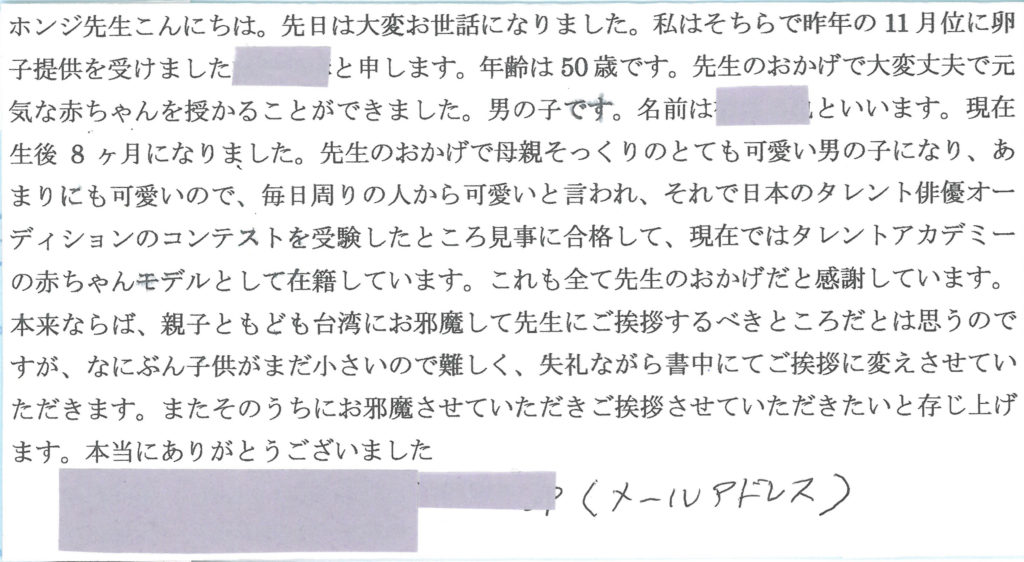 ホンジ先生こんにちは。先日は大変お世話になりました。私はそちらで昨年の11月位に卵
子提供を受けました と申します。年齢は50歳です。先生のおかげで大変丈夫で元
気な赤ちゃんを授かることができました。男の子です。名前は といいます。現在
生後8ヶ月になりました。先生のおかげで母親そっくりのとても可愛い男の子になり、あ
まりにも可愛いので、毎日周りの人から可愛いと言われ、それで日本のタレント俳優オー
ディションのコンテストを受験したところ見事に合格して、現在ではタレントアカデミー
の赤ちゃんモデルとして在籍しています。これも全て先生のおかげだと感謝しています。
本来ならば、親子ともども台湾にお邪魔して先生にご挨拶するべきところだとは思うので
すが、なにぶん子供がまだ小さいので難しく、失礼ながら書中にてご挨拶に変えさせてい
ただきます。またそのうちにお邪魔させていただきご挨拶させていただきたいと存じ上げ
ます。本当にありがとうございました
(メールアドレス)